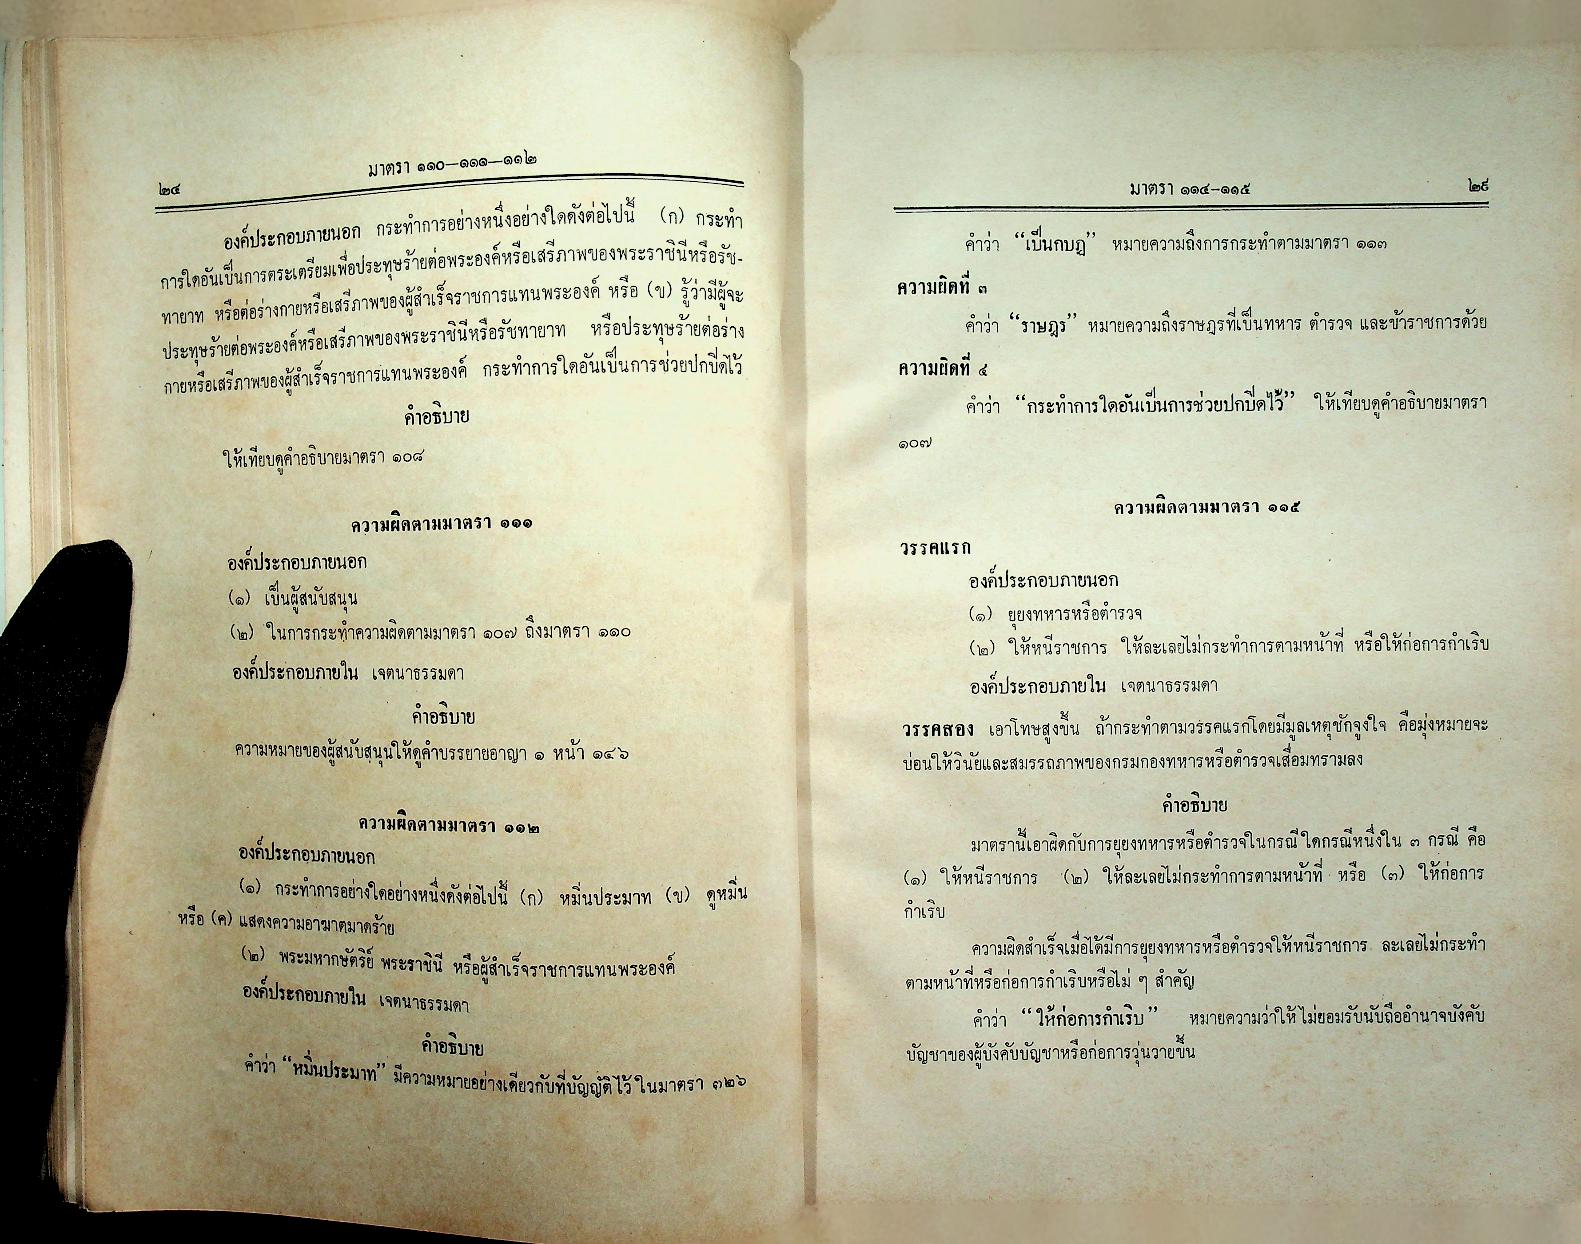 มาตรา ๑๑๐—๑๑๑—๑๑๒
๒๔
องค์ประกอบภายนอก กระทำการอย่างหนึ่งอย่างใดดังต่อไปนี้ (ก) กระทำ
การใดอันเป็นการตระเตรียมเพื่อประทุษร้ายต่อพระองค์หรือเสรีภาพของพระราชินีหรือรัช-
ทายาท หรือต่อร่างกายหรือเสรีภาพของผู้สำเร็จราชการแทนพระองค์ หรือ (ข) รู้ว่ามีผู้จะ
ประทุษร้ายต่อพระองค์หรือเสรีภาพของพระราชินีหรือรัชทายาท หรือประทุษร้ายต่อร่าง
กายหรือเสรีภาพของผู้สำเร็จราชการแทนพระองค์ กระทำการใดอันเป็นการช่วยปกปิดไว้
คำอธิบาย
ให้เทียบดูคำอธิบายมาตรา ๑๐๘
ความผิดตามมาตรา ๑๑๑
องค์ประกอบภายนอก
(๑) เป็นผู้สนับสนุน
(๒) ในการกระทำความผิดตามมาตรา ๑๐๗ ถึงมาตรา ๑๑๐
องค์ประกอบภายใน เจตนาธรรมดา
คำอธิบาย
ความหมายของผู้สนับสนุนให้ดูคำบรรยายอาญา ๑ หน้า ๑๔๖
ความผิดตามมาตรา ๑๑๒
องค์ประกอบภายนอก
(๑) กระทำการอย่างใดอย่างหนึ่งดังต่อไปนี้ (ก) หมิ่นประมาท (ข) ดูหมิ่น
หรือ (ค) แสดงความอาฆาตมาดร้าย
(๒) พระมหากษัตริย์ พระราชินี หรือผู้สำเร็จราชการแทนพระองค์
องค์ประกอบภายใน เจตนาธรรมดา
คำอธิบาย
คำว่า “หมิ่นประมาท” มีความหมายอย่างเดียวกับที่บัญญัติไว้ในมาตรา ๓๒๖
มาตรา ๑๑๔-๑๑๕
๒๙
คำว่า “เป็นกบฏ” หมายความถึงการกระทำตามมาตรา ๑๑๓
ความผิดที่ ๓
คำว่า “ราษฎร” หมายความถึงราษฎรที่เป็นทหาร ตำรวจ และข้าราชการด้วย
ความผิดที่ ๔
คำว่า “กระทำการใดอันเป็นการช่วยปกปิดไว้” ให้เทียบดูคำอธิบายมาตรา
๑๐๗
ความผิดตามมาตรา ๑๑๕
วรรคแรก
องค์ประกอบภายนอก
(๑) ยุยงทหารหรือตำรวจ
(๒) ให้หนีราชการ ให้ละเลยไม่กระทำการตามหน้าที่ หรือให้ก่อการกำเริบ
องค์ประกอบภายใน เจตนาธรรมดา
วรรคสอง เอาโทษสูงขึ้น ถ้ากระทำตามวรรคแรกโดยมีมูลเหตุชักจูงใจ คือมุ่งหมายจะ
บ่อนให้วินัยและสมรรถภาพของกรมกองทหารหรือตำรวจเสื่อมทรามลง
คำอธิบาย
มาตรานี้เอาผิดกับการยุยงทหารหรือตำรวจในกรณีใดกรณีหนึ่งใน ๓ กรณี คือ
(๑) ให้หนีราชการ (๒) ให้ละเลยไม่กระทำการตามหน้าที่ หรือ (๓) ให้ก่อการ
กำเริบ
ความผิดสำเร็จเมื่อได้มีการยุยงทหารหรือตำรวจให้หนีราชการ ละเลยไม่กระทำ
ตามหน้าที่หรือก่อการกำเริบหรือไม่ ๆ สำคัญ
คำว่า “ให้ก่อการกำเริบ” หมายความว่าให้ไม่ยอมรับนับถืออำนาจบังคับ
บัญชาของผู้บังคับบัญชาหรือก่อการวุ่นวายขึ้น